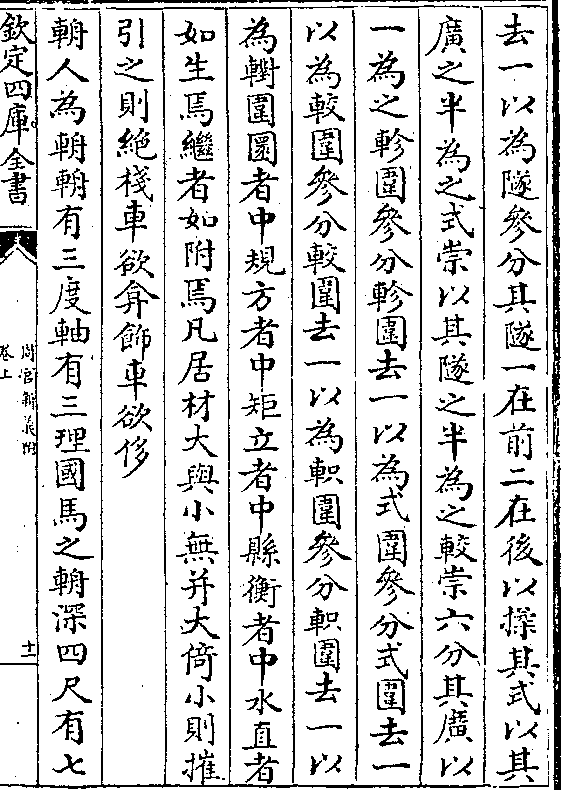 去一以為隧參分其隧一在前二在後以揉其式以其
廣之半為之式崇以其隧之半為之較崇六分其廣以
一為之軫圍參分軫圍去一以為式圍參分式圍去一
以為較圍參分較圍去一以為軹圍參分軹圍去一以
為轛圍圜者中規方者中矩立者中縣衡者中水直者
如生焉繼者如附焉凡居材大與小無并大倚小則摧
引之則絶棧車欲弇飾車欲侈
輈人為輈輈有三度軸有三理國馬之輈深四尺有七
欽定四庫全書
周官新義附
卷上
十一